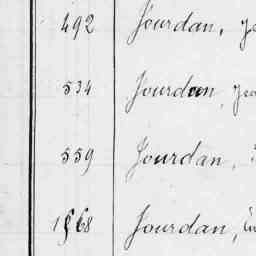 492 Jourdan, Je
534 Jourdan, Jea
559 Jourdan,
1868 Jourdan,